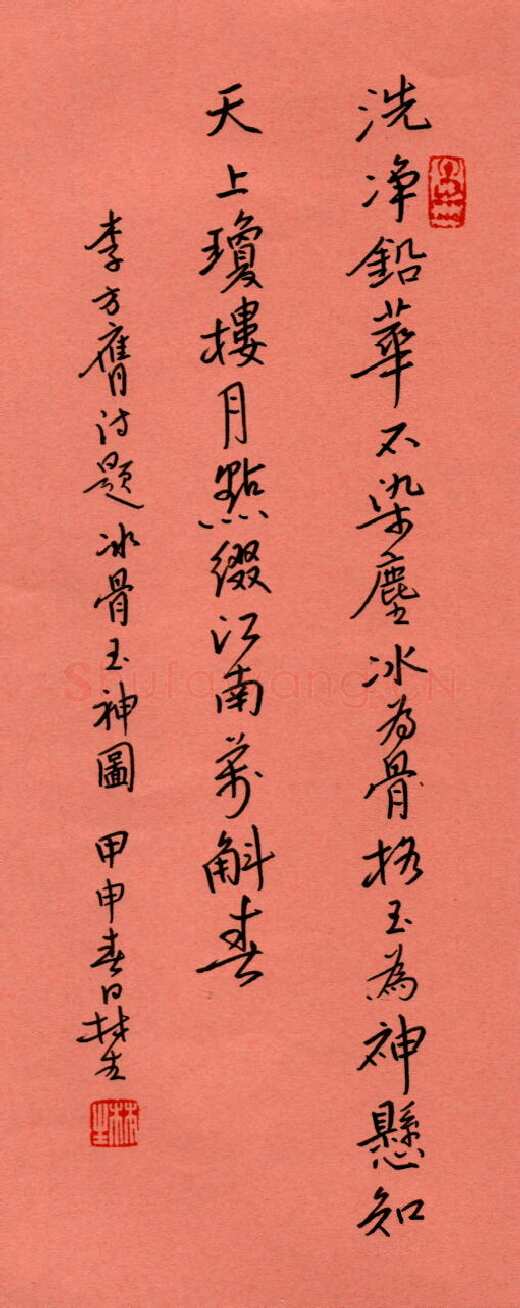 洗净鉛華不染塵冰為骨格玉為神懸知
天上瓊樓月點缀江南萬斛春
李方膺诗題冰骨玉神圖 甲申春日林生